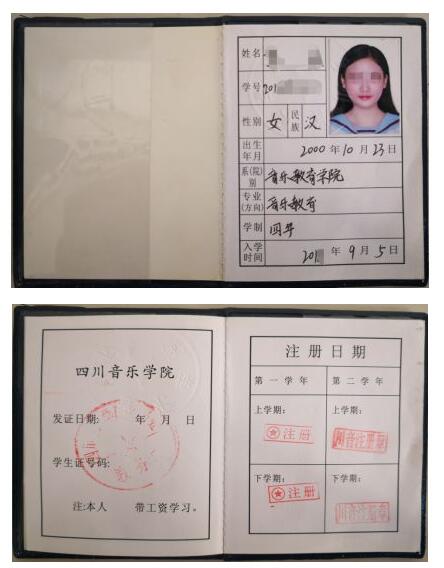 姓名
学号 201
性别 女 民族 汉
出生年月 2000年10月23日
系(院)别 音乐教育学院
专业(方向) 音乐教育
学制 四年
入学时间 201 年9月5日
四川音乐学院
发证日期: 年 月 日
学生证号码:
注:本人 带工资学习。
注册日期
第一学年 第二学年
上学期: 上学期:
注册 川音注册章
下学期: 下学期:
注册 川音注册章